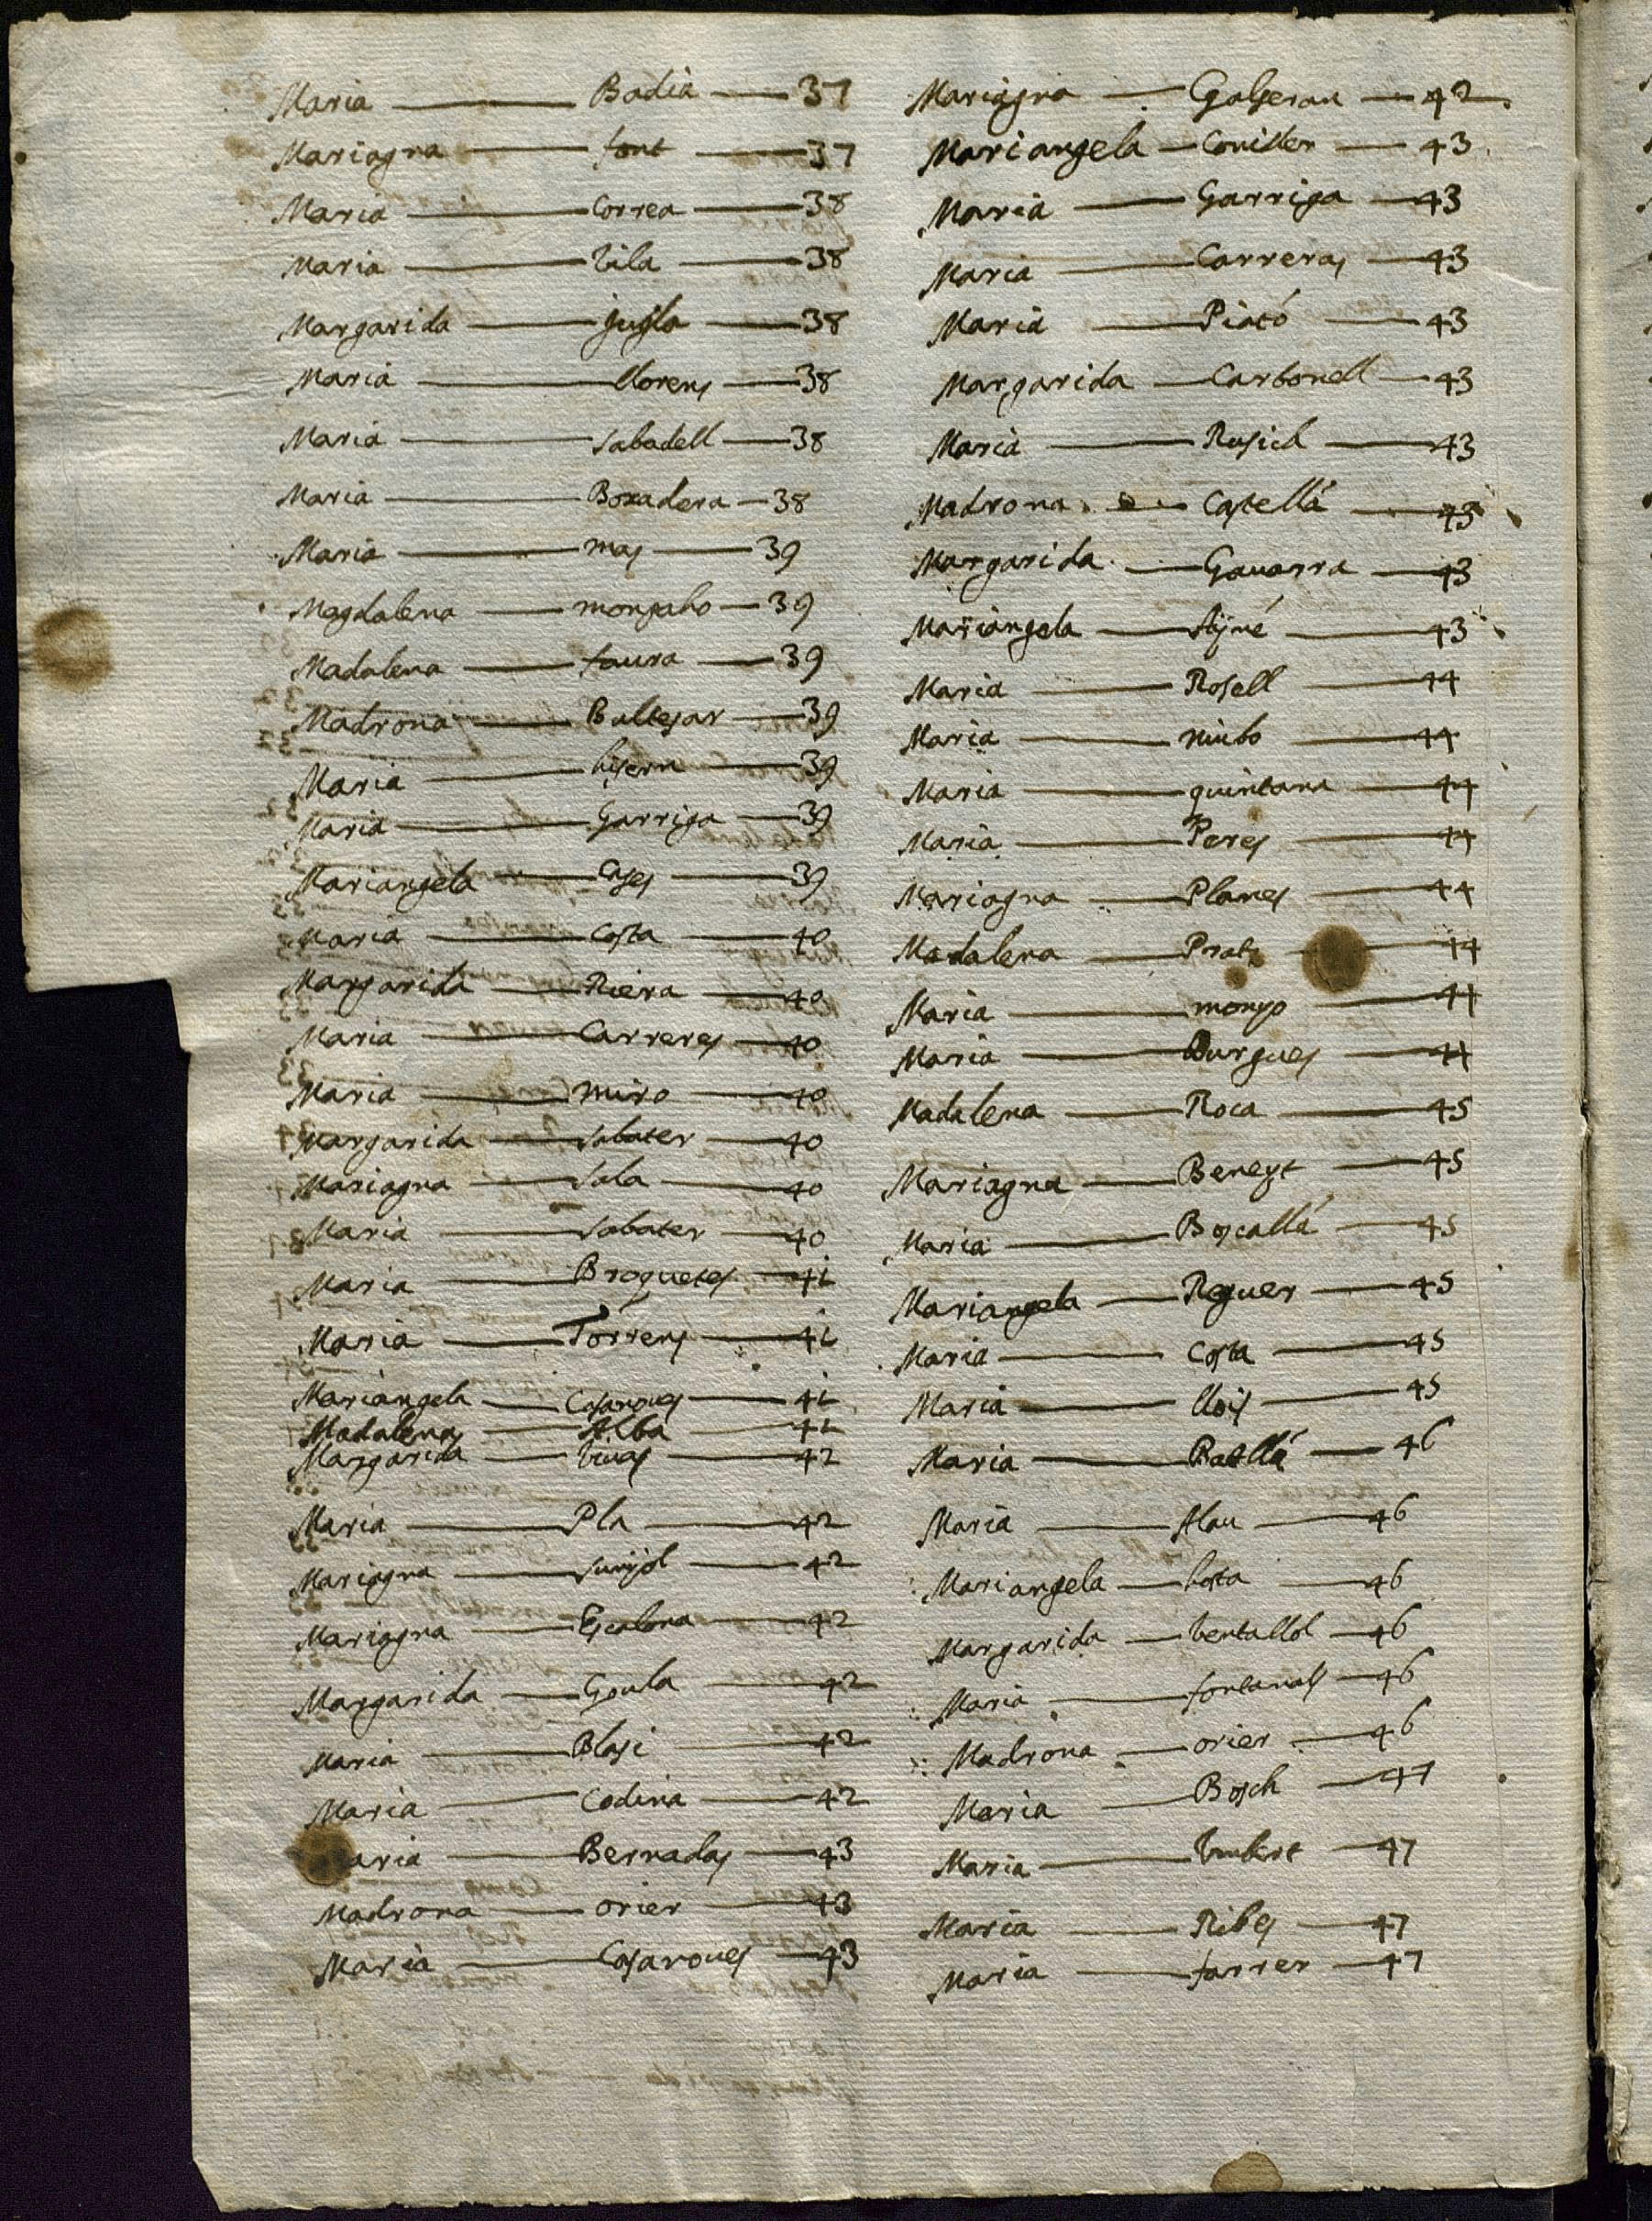 Maria — Badia — 37
Mariagna — font — 37
Maria — Correa — 38
Maria — Vila — 38
Margarida — jugla — 38
Maria — llorens — 38
Maria — Sabadell — 38
Maria — Boxadera — 38
Maria — mas — 39
Magdalena — monpaho — 39
Madalena — faura — 39
Madrona — Baltesar — 39
Maria — lisern — 39
Maria — Garriga — 39
Mariangela — Cases — 39
Maria — Costa — 40
Margarida — Riera — 40
Maria — Carreres — 40
Maria — miro — 40
Margarida — Sabater — 40
Mariagna — Sala — 40
Maria — Sabater — 40
Maria — Broquetes — 41
Maria — Torrens — 41
Mariangela — Casanoves — 41
Madalena — Alba — 42
Margarida — Vivas — 42
Maria — Pla — 42
Mariagna — Sunyol — 42
Mariagna — Escalona — 42
Margarida — Goula — 42
Maria — Blasi — 42
Maria — Codina — 42
Maria — Bernadas — 43
Madrona — orier — 43
Maria — Casanoves — 43
Mariagna — Galseran — 42
Mariangela — Coniller — 43
Maria — Garriga — 43
Maria — Carreras — 43
Maria — Piató — 43
Margarida — Carbonell — 43
Maria — Rusich — 43
Madrona — Castellá — 43
Margarida — Gavarra — 43
Mariangela — Aÿné — 43
Maria — Rosell — 44
Maria — nimbo — 44
Maria — quintana — 44
Maria — Peres — 44
Mariagna — Planes — 44
Madalena — Prats — 44
Maria — monso — 44
Maria — Burgues — 44
Madalena — Roca — 45
Mariagna — Beneyt — 45
Maria — Boscallá — 45
Mariangela — Reguer — 45
Maria — Costa — 45
Maria — llois — 45
Maria — Batllá — 46
Maria — Alau — 46
Mariangela — hosta — 46
Margarida — Ventallol — 46
Maria — fontanals — 46
Madrona — orier — 46
Maria — Bosch — 47
Maria — Vmbert — 47
Maria — Ribes — 47
Maria — farrer — 47